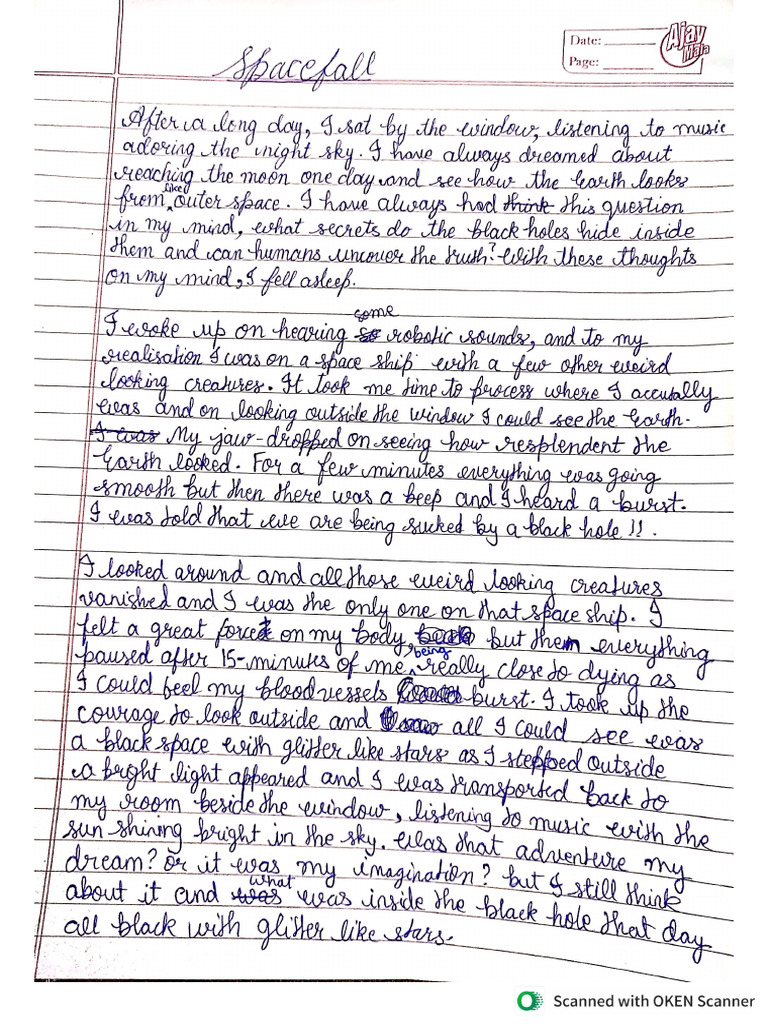 Date:
Page:
Ajay
Mala
Spacefall
After a long day, I sat by the window, listening to music
adoring the night sky. I have always dreamed about
reaching the moon one day and see how the Earth looks
from like outer space. I have always had think this question
in my mind, what secrets do the black holes hide inside
them and can humans uncover the truth? With these thoughts
on my mind, I fell asleep.
I woke up on hearing so some robotic sounds, and to my
realisation I was on a space ship with a few other weird
looking creatures. It took me time to process where I accutally
was and on looking outside the window I could see the Earth.
I was My jaw-dropped on seeing how resplendent the
Earth looked. For a few minutes everything was going
smooth but then there was a beep and I heard a burst.
I was told that we are being sucked by a black hole!!.
I looked around and all those weird looking creatures
vanished and I was the only one on that space ship. I
felt a great force on my body, but then everything
paused after 15-minutes of me being really close to dying as
I could feel my blood vessels burst. I took up the
courage to look outside and all I could see was
a black space with glitter like stars as I stepped outside
a bright light appeared and I was transported back to
my room beside the window, listening to music with the
sun shining bright in the sky. Was that adventure my
dream? or it was my imagination? but I still think
about it and was what was inside the black hole that day
all black with glitter like stars.
Scanned with OKEN Scanner